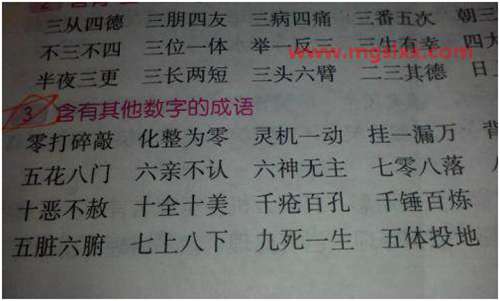 三从四德 三朋四友 三病四痛 三番五次 朝三
不三不四 三位一体 举一反三 三生有幸 四大
www.mgslxx.com
半夜三更 三长两短 三头六臂 二三其德 日
3 含有其他数字的成语
零打碎敲 化整为零 灵机一动 挂一漏万
五花八门 六亲不认 六神无主 七零八落
十恶不赦 十全十美 千疮百孔 千锤百炼
五脏六腑 七上八下 九死一生 五体投地